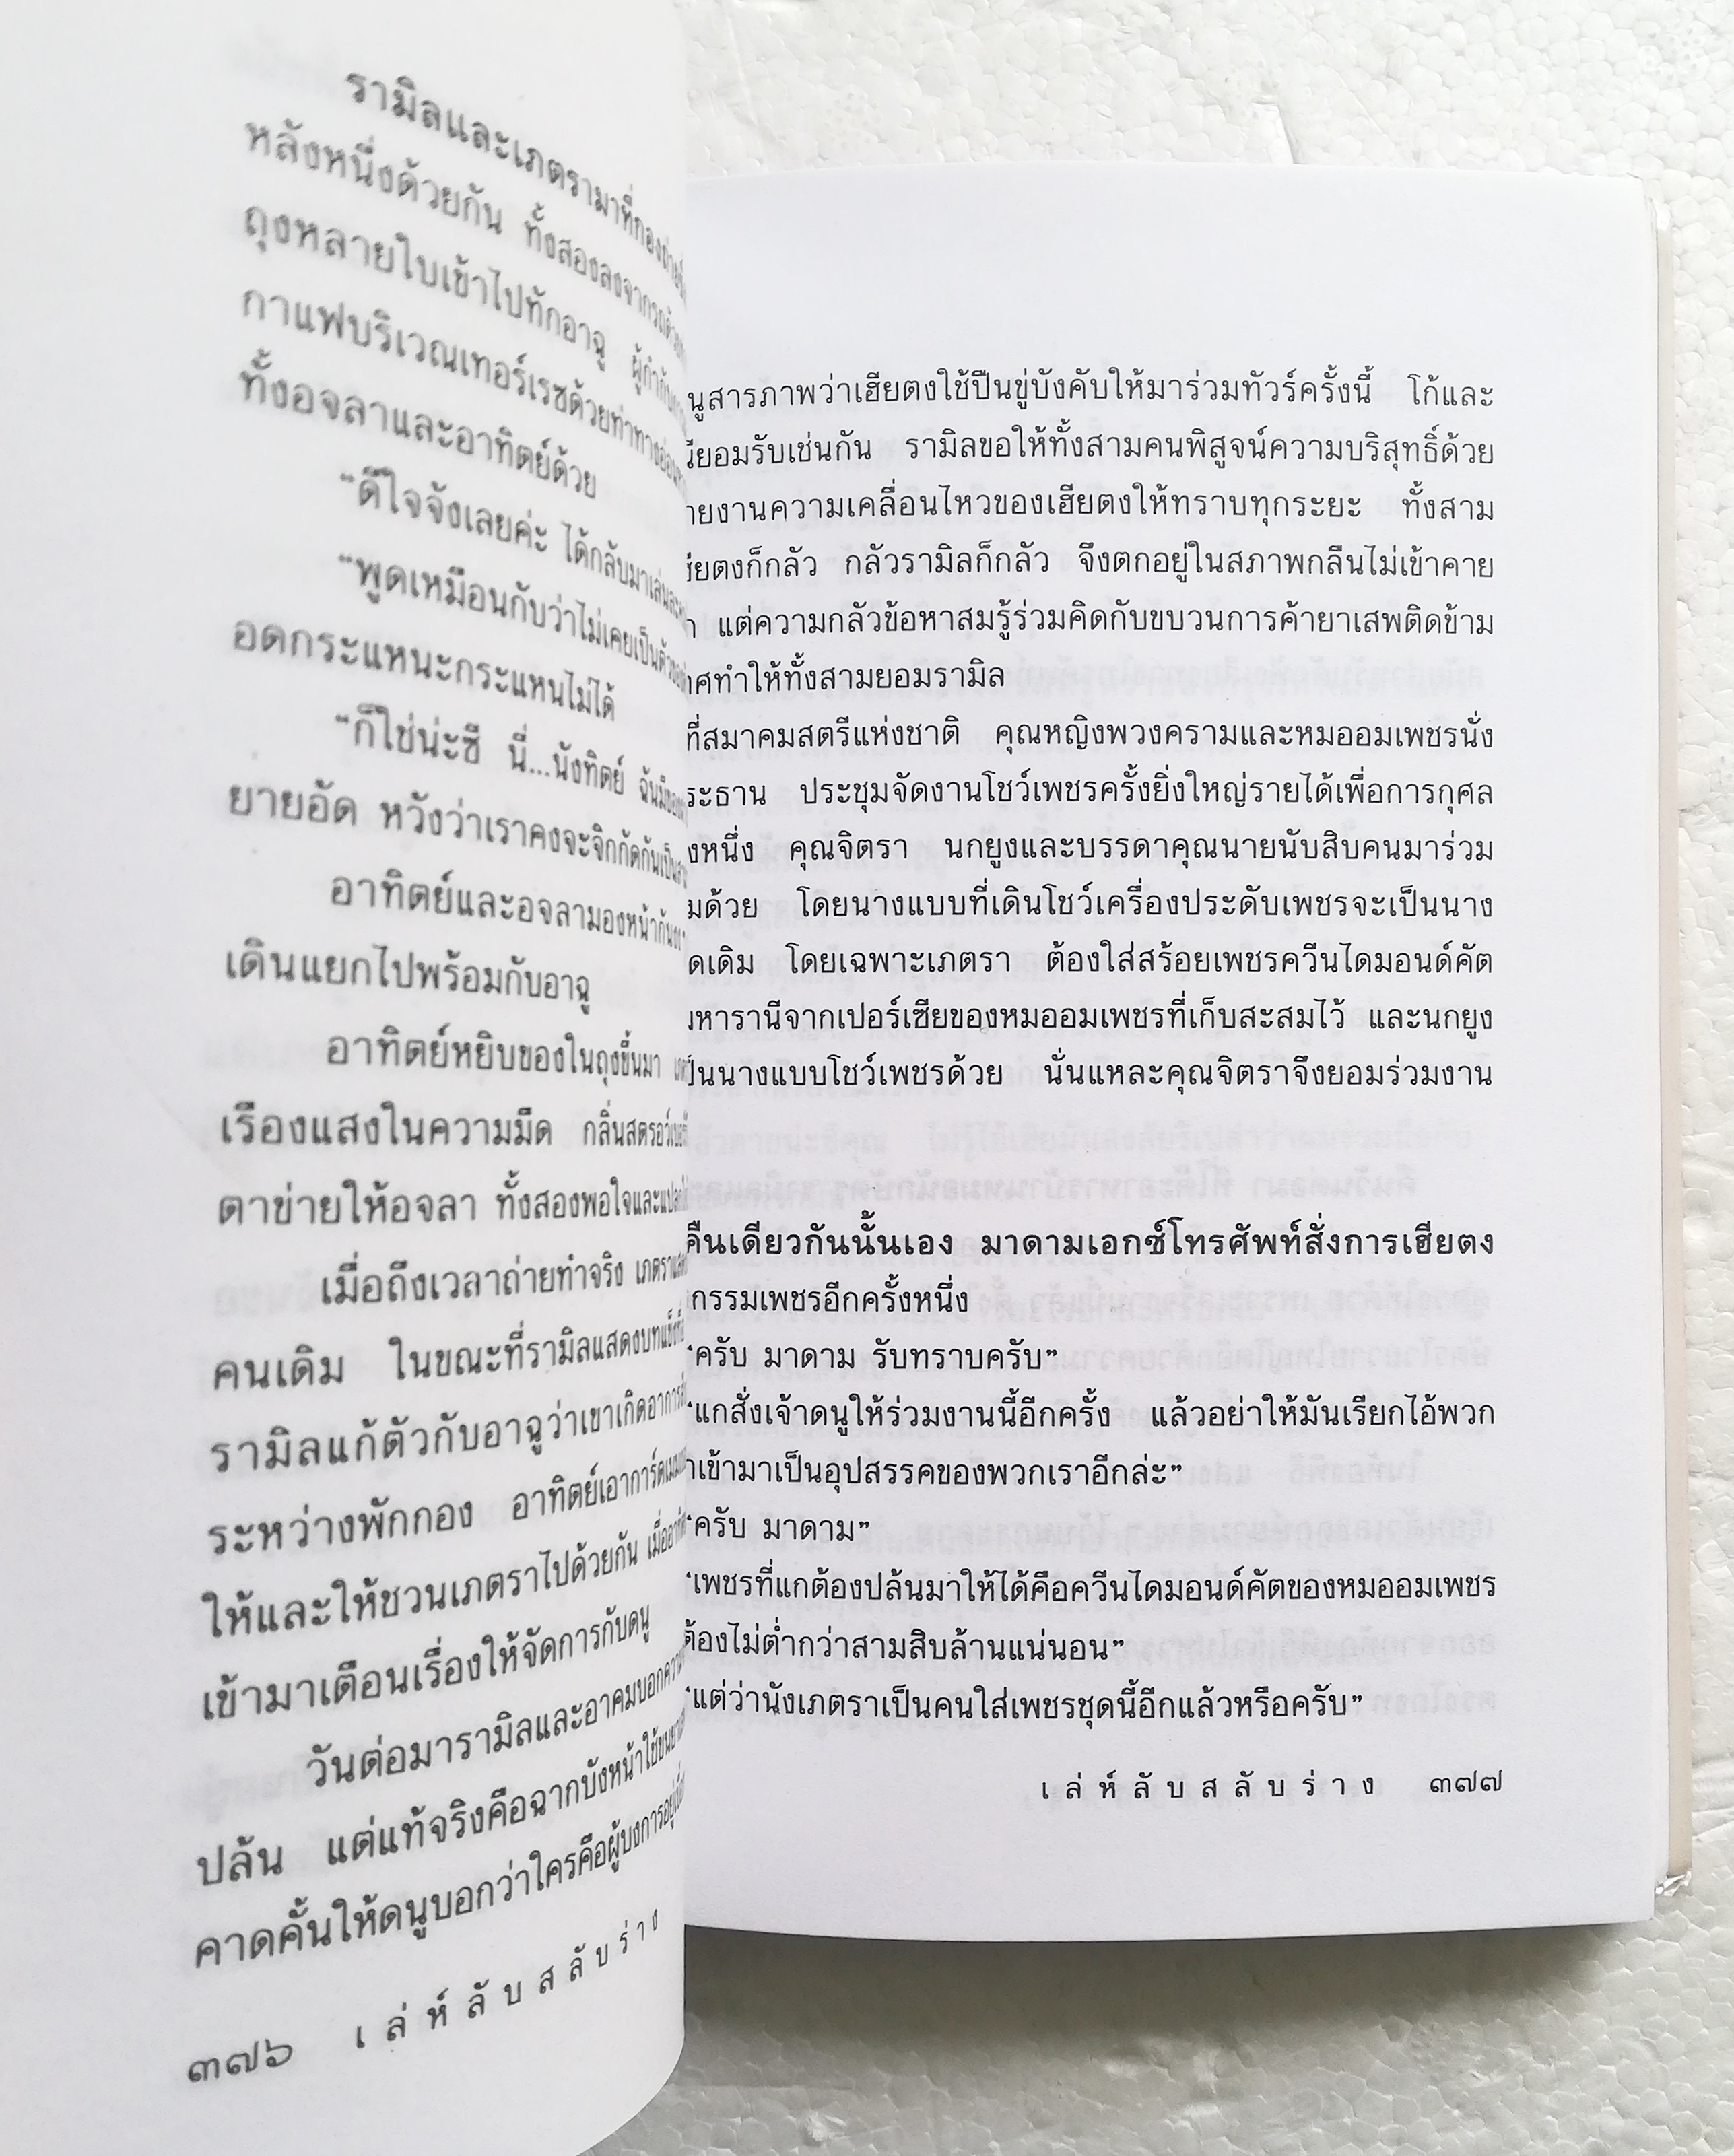 รามิลและเภตรามาที่กองถ่าย
หลังหนึ่งด้วยกัน ทั้งสองลงจากรถด้วย
ถุงหลายใบเข้าไปทักอาฉู ผู้กำกับ
กาแฟบริเวณเทอร์เรซด้วยท่าทาง
ทั้งอจลาและอาทิตย์ด้วย
“ดีใจจังเลยค่ะ ได้กลับมาเล่น
“พูดเหมือนกับว่าไม่เคยเป็น
อดกระแหนะกระแหนไม่ได้
“ก็ใช่น่ะซี นี่...นังทิตย์ ฉันมี
ยายอัด หวังว่าเราคงจะจิกกัดกันเป็น
อาทิตย์และอจลามองหน้ากัน
เดินแยกไปพร้อมกับอาฉู
อาทิตย์หยิบของในถุงขึ้นมา
เรืองแสงในความมืด กลิ่นสตรอว์เบอร์รี
ตาข่ายให้อจลา ทั้งสองพอใจและ
เมื่อถึงเวลาถ่ายทำจริง เภตรา
คนเดิม ในขณะที่รามิลแสดงบท
รามิลแก้ตัวกับอาฉูว่าเขาเกิดอาการ
ระหว่างพักกอง อาทิตย์เอาการ์ด
ให้และให้ชวนเภตราไปด้วยกัน เมื่อ
เข้ามาเตือนเรื่องให้จัดการกับดนู
วันต่อมารามิลและอาคมบอก
ปล้น แต่แท้จริงคือฉากบังหน้าใช้ขน
คาดคั้นให้ดนูบอกว่าใครคือผู้บงการ
๓๗๖ เล่ห์ลับสลับร่าง
นูสารภาพว่าเฮียตงใช้ปืนขู่บังคับให้มาร่วมทัวร์ครั้งนี้ โก้และ
ยอมรับเช่นกัน รามิลขอให้ทั้งสามคนพิสูจน์ความบริสุทธิ์ด้วย
ายงานความเคลื่อนไหวของเฮียตงให้ทราบทุกระยะ ทั้งสาม
ียตงก็กลัว กลัวรามิลก็กลัว จึงตกอยู่ในสภาพกลืนไม่เข้าคาย
แต่ความกลัวข้อหาสมรู้ร่วมคิดกับขบวนการค้ายาเสพติดข้าม
ศทำให้ทั้งสามยอมรามิล
ที่สมาคมสตรีแห่งชาติ คุณหญิงพวงครามและหมออมเพชรนั่ง
ระธาน ประชุมจัดงานโชว์เพชรครั้งยิ่งใหญ่รายได้เพื่อการกุศล
งหนึ่ง คุณจิตรา นกยูงและบรรดาคุณนายนับสิบคนมาร่วม
มด้วย โดยนางแบบที่เดินโชว์เครื่องประดับเพชรจะเป็นนาง
ดเดิม โดยเฉพาะเภตรา ต้องใส่สร้อยเพชรควีนไดมอนด์คัต
มหารานีจากเปอร์เซียของหมออมเพชรที่เก็บสะสมไว้ และนกยูง
ป็นนางแบบโชว์เพชรด้วย นั่นแหละคุณจิตราจึงยอมร่วมงาน
คืนเดียวกันนั้นเอง มาดามเอกซ์โทรศัพท์สั่งการเฮียตง
กรรมเพชรอีกครั้งหนึ่ง
“ครับ มาดาม รับทราบครับ”
“แกสั่งเจ้าดนูให้ร่วมงานนี้อีกครั้ง แล้วอย่าให้มันเรียกไอ้พวก
าเข้ามาเป็นอุปสรรคของพวกเราอีกล่ะ”
“ครับ มาดาม”
“เพชรที่แกต้องปล้นมาให้ได้คือควีนไดมอนด์คัตของหมออมเพชร
ต้องไม่ต่ำกว่าสามสิบล้านแน่นอน”
“แต่ว่านังเภตราเป็นคนใส่เพชรชุดนี้อีกแล้วหรือครับ”
เล่ห์ลับสลับร่าง ๓๗๗